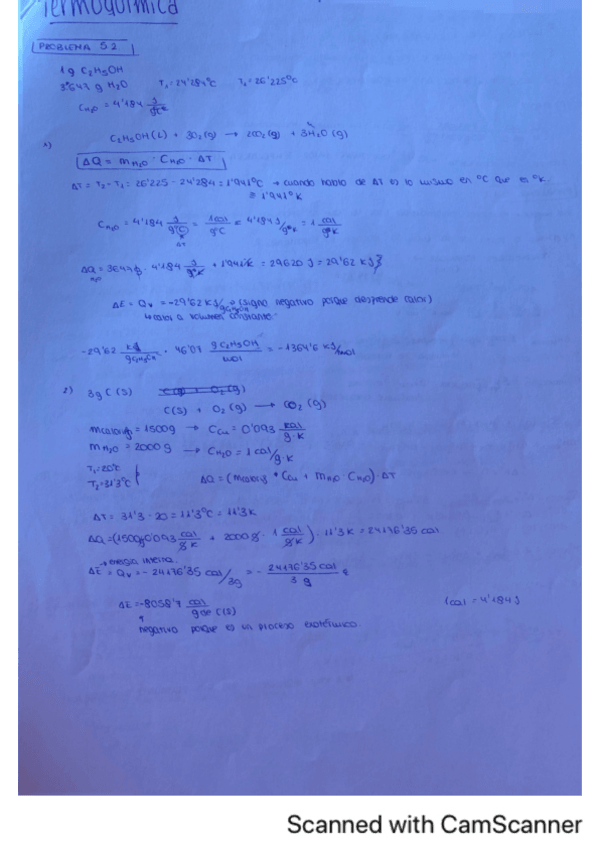 Termoquímica
PROBLEMA 5.2
1 g C₂H₅OH
3'647 g H₂O T₁ = 24'284ºC T₂ = 26'225ºC
C H₂O = 4'184 J/gºC
C₂H₅OH (L) + 3O₂ (g) → 2CO₂ (g) + 3H₂O (g)
ΔQ = m H₂O · C H₂O · ΔT
ΔT = T₂ - T₁ = 26'225 - 24'284 = 1'941ºC → cuando hablo de ΔT es lo mismo en ºC que en ºK.
= 1'941ºK
C H₂O = 4'184 J/gºC = 1cal/gºC = 4'184 J/gºK = 1 cal/gºK
ΔQ H₂O = 3644 g · 4'184 J/gºK · 1'941K = 29620 J = 29'62 KJ
ΔE = Qv = -29'62 KJ/g C₂H₅OH → (signo negativo porque desprende calor)
↳ calor a volumen constante.
-29'62 KJ/g C₂H₅OH · 46'07 g C₂H₅OH/mol = -1364'6 KJ/mol
2) 3g C (s)
C(s) + O₂ (g) → CO₂ (g)
m calorig = 1500g → C Cu = 0'093 cal/g·K
m H₂O = 2000g → C H₂O = 1 cal/g·K
T₁ = 20ºC
T₂ = 31'3ºC
ΔQ = (m calorig · C Cu + m H₂O · C H₂O) · ΔT
ΔT = 31'3 - 20 = 11'3ºC = 11'3K
ΔQ = (1500g·0'093 cal/gK + 2000g · 1 cal/gK) · 11'3K = 24176'35 cal
→ energía interna.
ΔE = Qv = - 24176'35 cal/3g = - 24176'35 cal/3 g
ΔE = -8058'7 cal/g de C(s)
1 cal = 4'184 J
negativo porque es un proceso exotérmico
Scanned with CamScanner